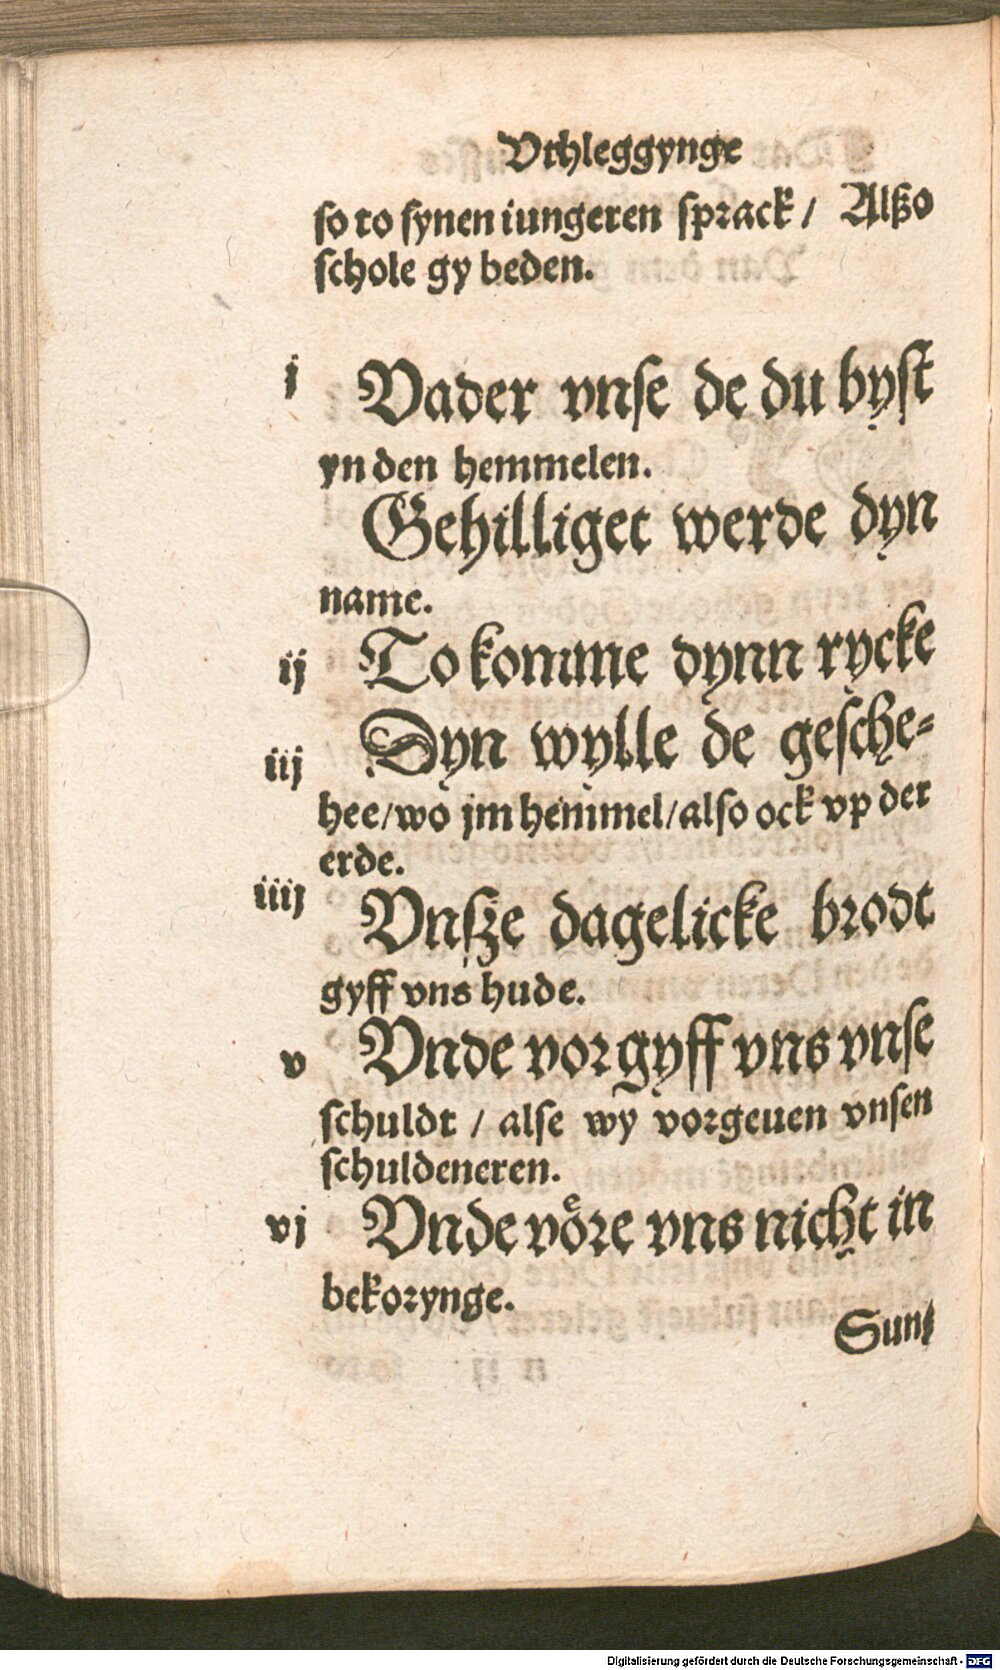 Vthleggynge
so to synen iungeren sprack / Alßo
schole gy beden.
j Vader vnse de du byst
yn den hemmelen.
Gehilliget werde dyn
name.
ij To komme dynn rycke
iij Dyn wylle de gesche⸗
hee/wo jm hemmel/also ock vp der
erde.
iiij Vnsze dagelicke brodt
gyff vns hude.
v Vnde vorgyff vns vnse
schuldt / alse wy vorgeuen vnsen
schuldeneren.
vj Vnde vöre vns nicht in
bekorynge.
Sun⸗
Digitalisierung gefördert durch die Deutsche Forschungsgemeinschaft - DFG